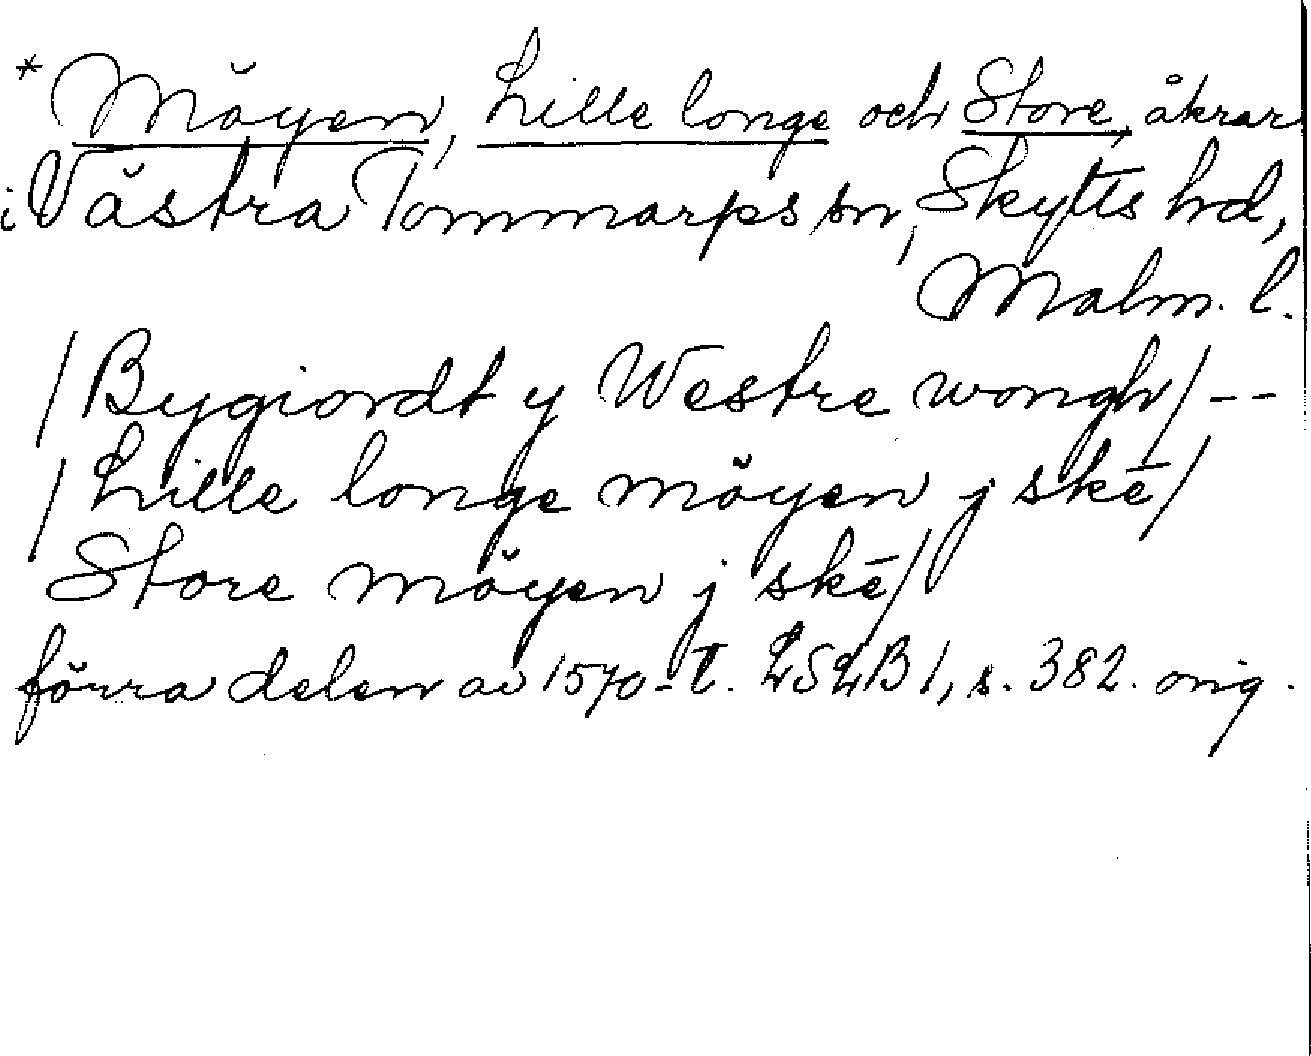 * Möyen, Lille longe och Store, åkrar
i Västra Tommarps sn, Skytts hd,
Malm. l.
/Bygiordt y Westre wongh/ --
/Lille longe möyen j skē/
Store möyen j skē/
förra delen av 1570-t. LSLB 1, s. 382. orig.